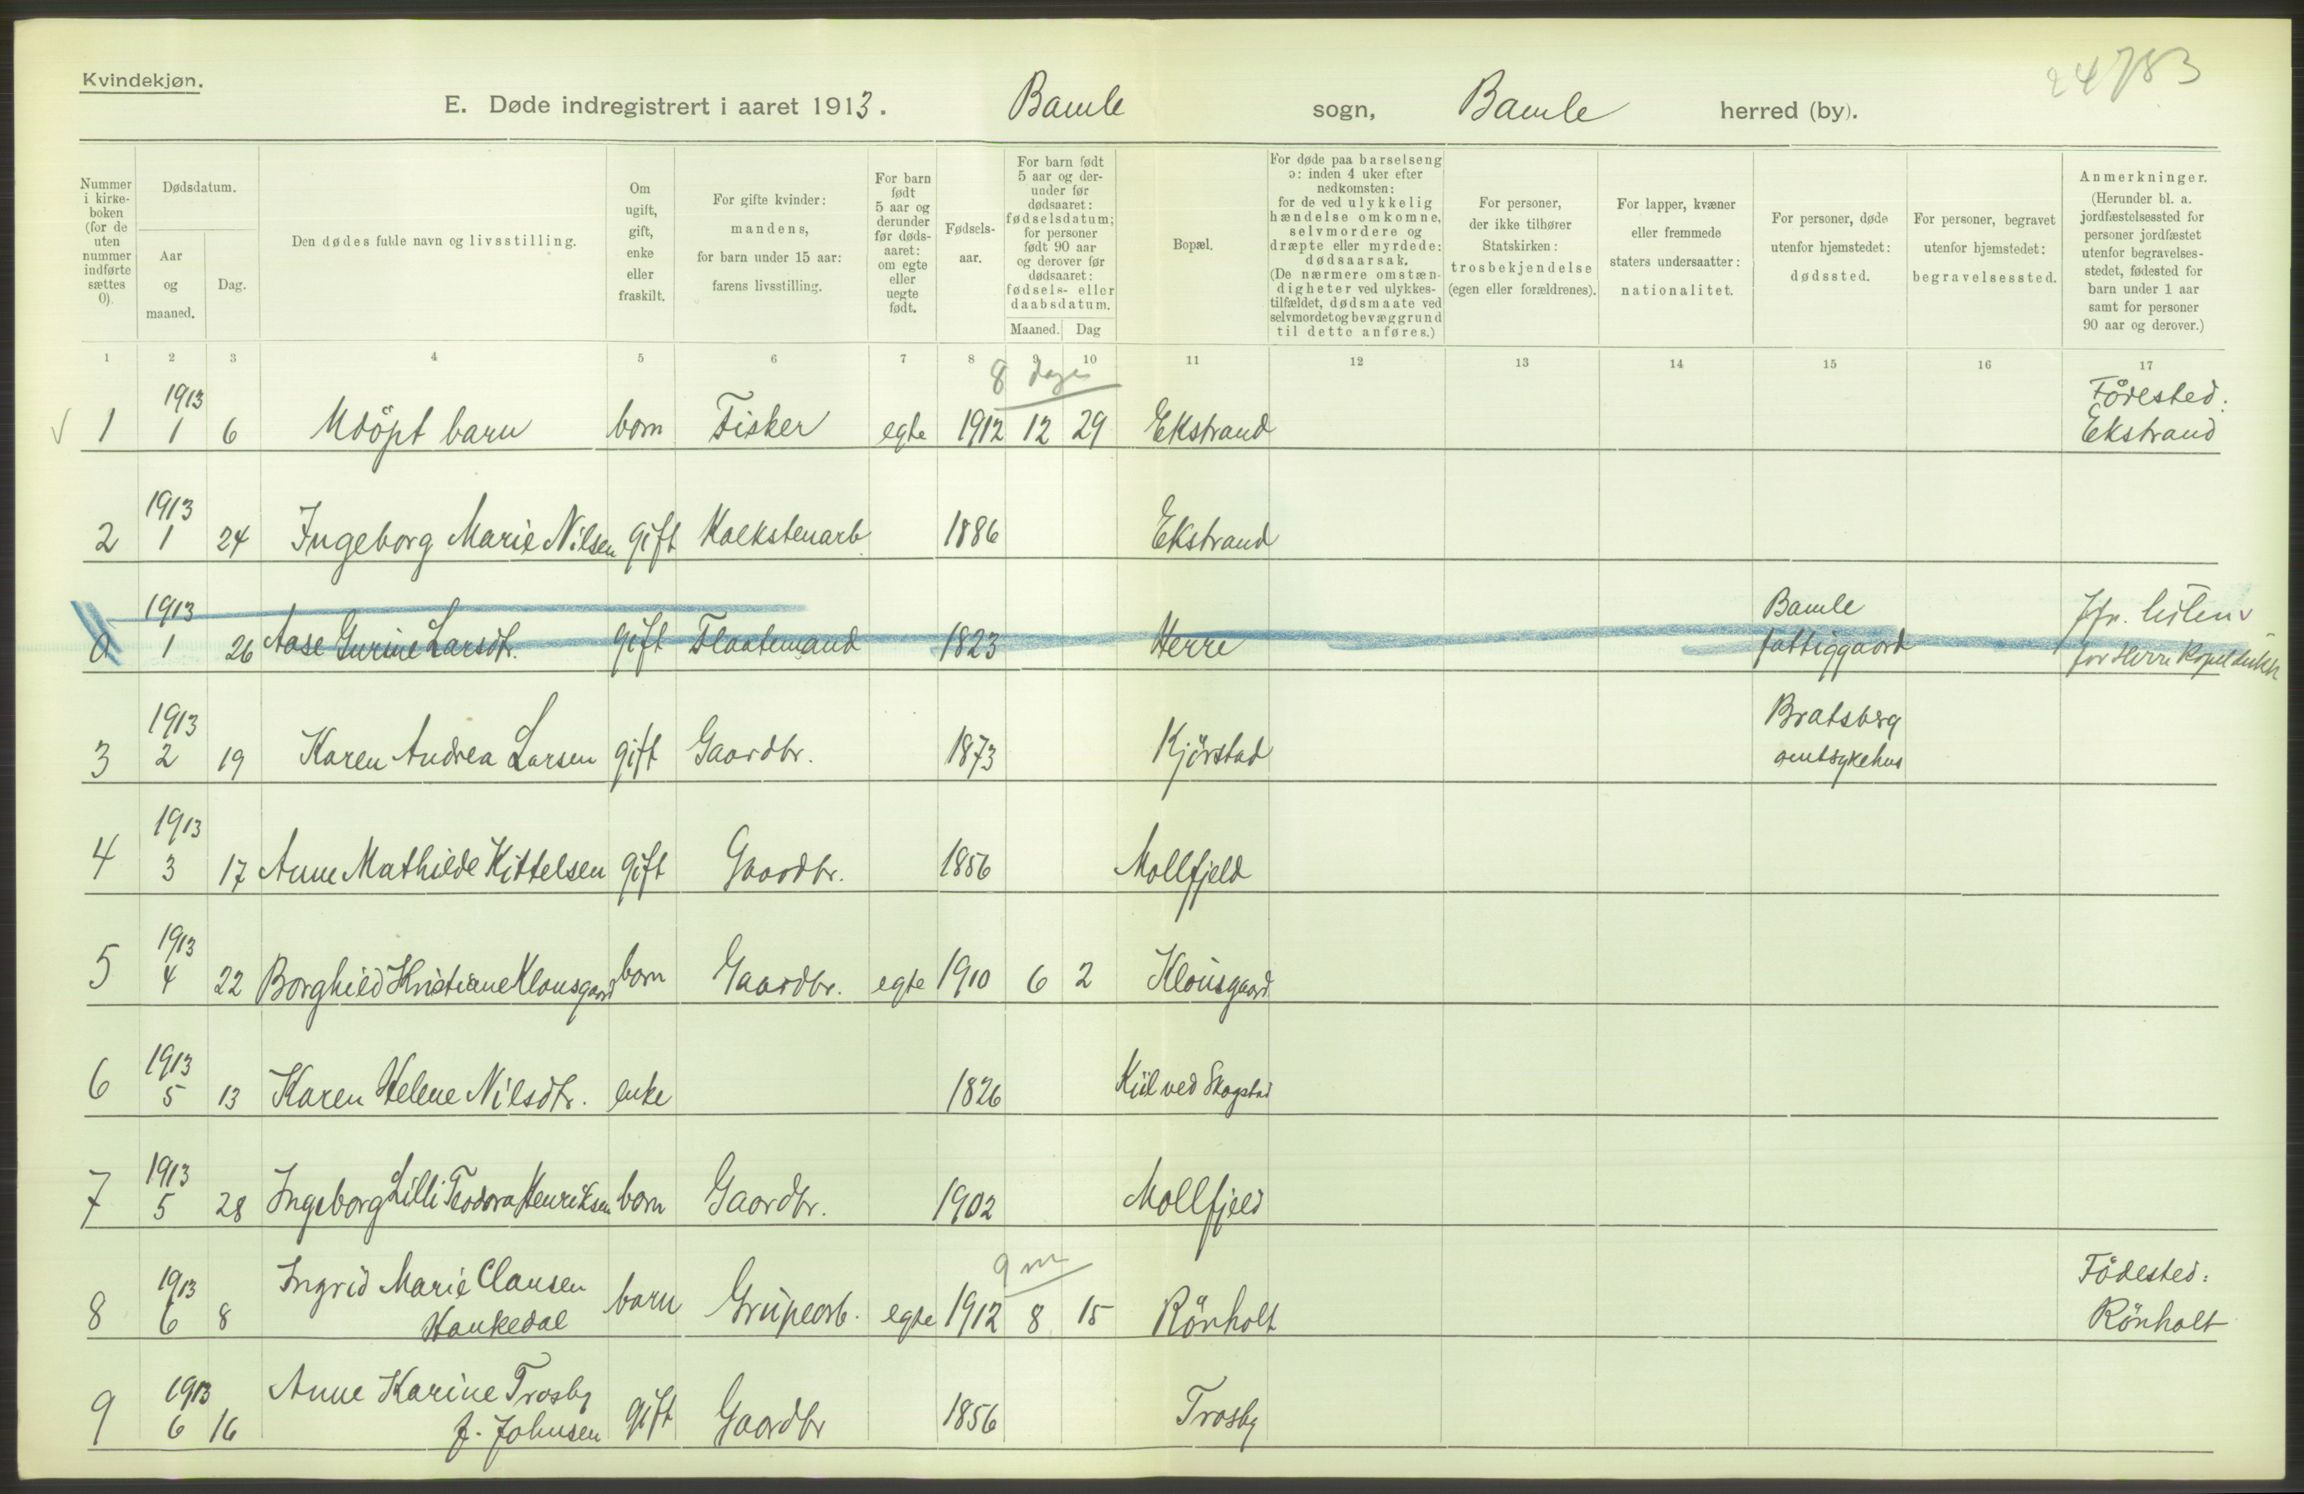 Kvindekjøn.
24783
E. Døde indregistrert i aaret 1913. Bamle sogn, Bamle herred (by).
Nummer i kirke-boken (for de uten nummer indførte sættes 0).
Dødsdatum.
Aar og maaned.
Dag.
Den dødes fulde navn og livsstilling.
Om ugift, gift, enke eller fraskilt.
For gifte kvinder: mandens, for barn under 15 aar: farens livsstilling.
For barn født 5 aar og derunder før døds-aaret: om egte eller uegte født.
Fødsels-aar.
For barn født 5 aar og der-under før dødsaaret: fødselsdatum; for personer født 90 aar og derover før dødsaaret: fødsels- eller daabsdatum.
Maaned. Dag
Bopæl.
For døde paa barselseng ɔ: inden 4 uker efter nedkomsten: for de ved ulykkelig hændelse omkomne, selvmordere og dræpte eller myrdede: dødsaarsak. (De nærmere omstæn-digheter ved ulykkes-tilfældet, dødsmaate ved selvmordet og bevæggrund til dette anføres.)
For personer, der ikke tilhører Statskirken: trosbekjendelse (egen eller forældrenes).
For lapper, kvæner eller fremmede staters undersaatter: nationalitet.
For personer, døde utenfor hjemstedet: dødssted.
For personer, begravet utenfor hjemstedet: begravelsessted.
Anmerkninger. (Herunder bl. a. jordfæstelsessted for personer jordfæstet utenfor begravelses-stedet, fødested for barn under 1 aar samt for personer 90 aar og derover.)
1 2 3 4 5 6 7 8 9 10 11 12 13 14 15 16 17
8 dage
1913 Födested:
√ 1 1 6 Udöpt barn barn Fisker egte 1912 12 29 Ekstrand Ekstrand
1913
2 1 24 Ingeborg Marie Nilsen gift Kalkstenarb. 1886 Ekstrand
1913 Bamle Jfr. listen
0 1 26 Aase Gurine Larsdt. gift Flaatemand 1823 Herre fattiggaard for Herre
1913 Bratsberg
3 2 19 Karen Andrea Larsen gift Gaardbr. 1873 Kjörstad amtsykehus
1913
4 3 17 Anne Mathilde Kittelsen gift Gaardbr. 1856 Mollfjeld
1913
5 4 22 Borghild Kristiane Klousgaard barn Gaardbr. egte 1910 6 2 Klousgaard
1913
6 5 13 Karen Helene Nilsdtr. enke 1826 Kiil ved Skogstad
1913
7 5 28 Ingeborg Lilli Teodora Henriksen barn Gaardbr. 1902 Mollfjeld
9 m
1913 Ingrid Marie Clausen Födested:
8 6 8 Hankedal barn Grupearb. egte 1912 8 15 Rönholt Rönholt
1913 Anne Karine Trosby
9 6 16 f. Johnsen gift Gaardbr 1856 Trosby